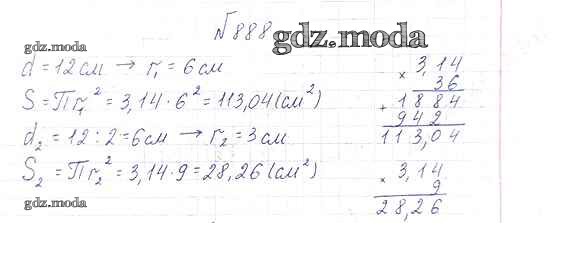 №888
gdz.moda
gdz.moda
d = 12 см → r₁ = 6 см
S = Пr₁² = 3,14 · 6² = 113,04 (см²)
d₂ = 12 : 2 = 6 см → r₂ = 3 см
S₂ = Пr₂² = 3,14 · 9 = 28,26 (см²)
gdz.moda
× 3,14
36
+ 1884
942
113,04
× 3,14
9
28,26